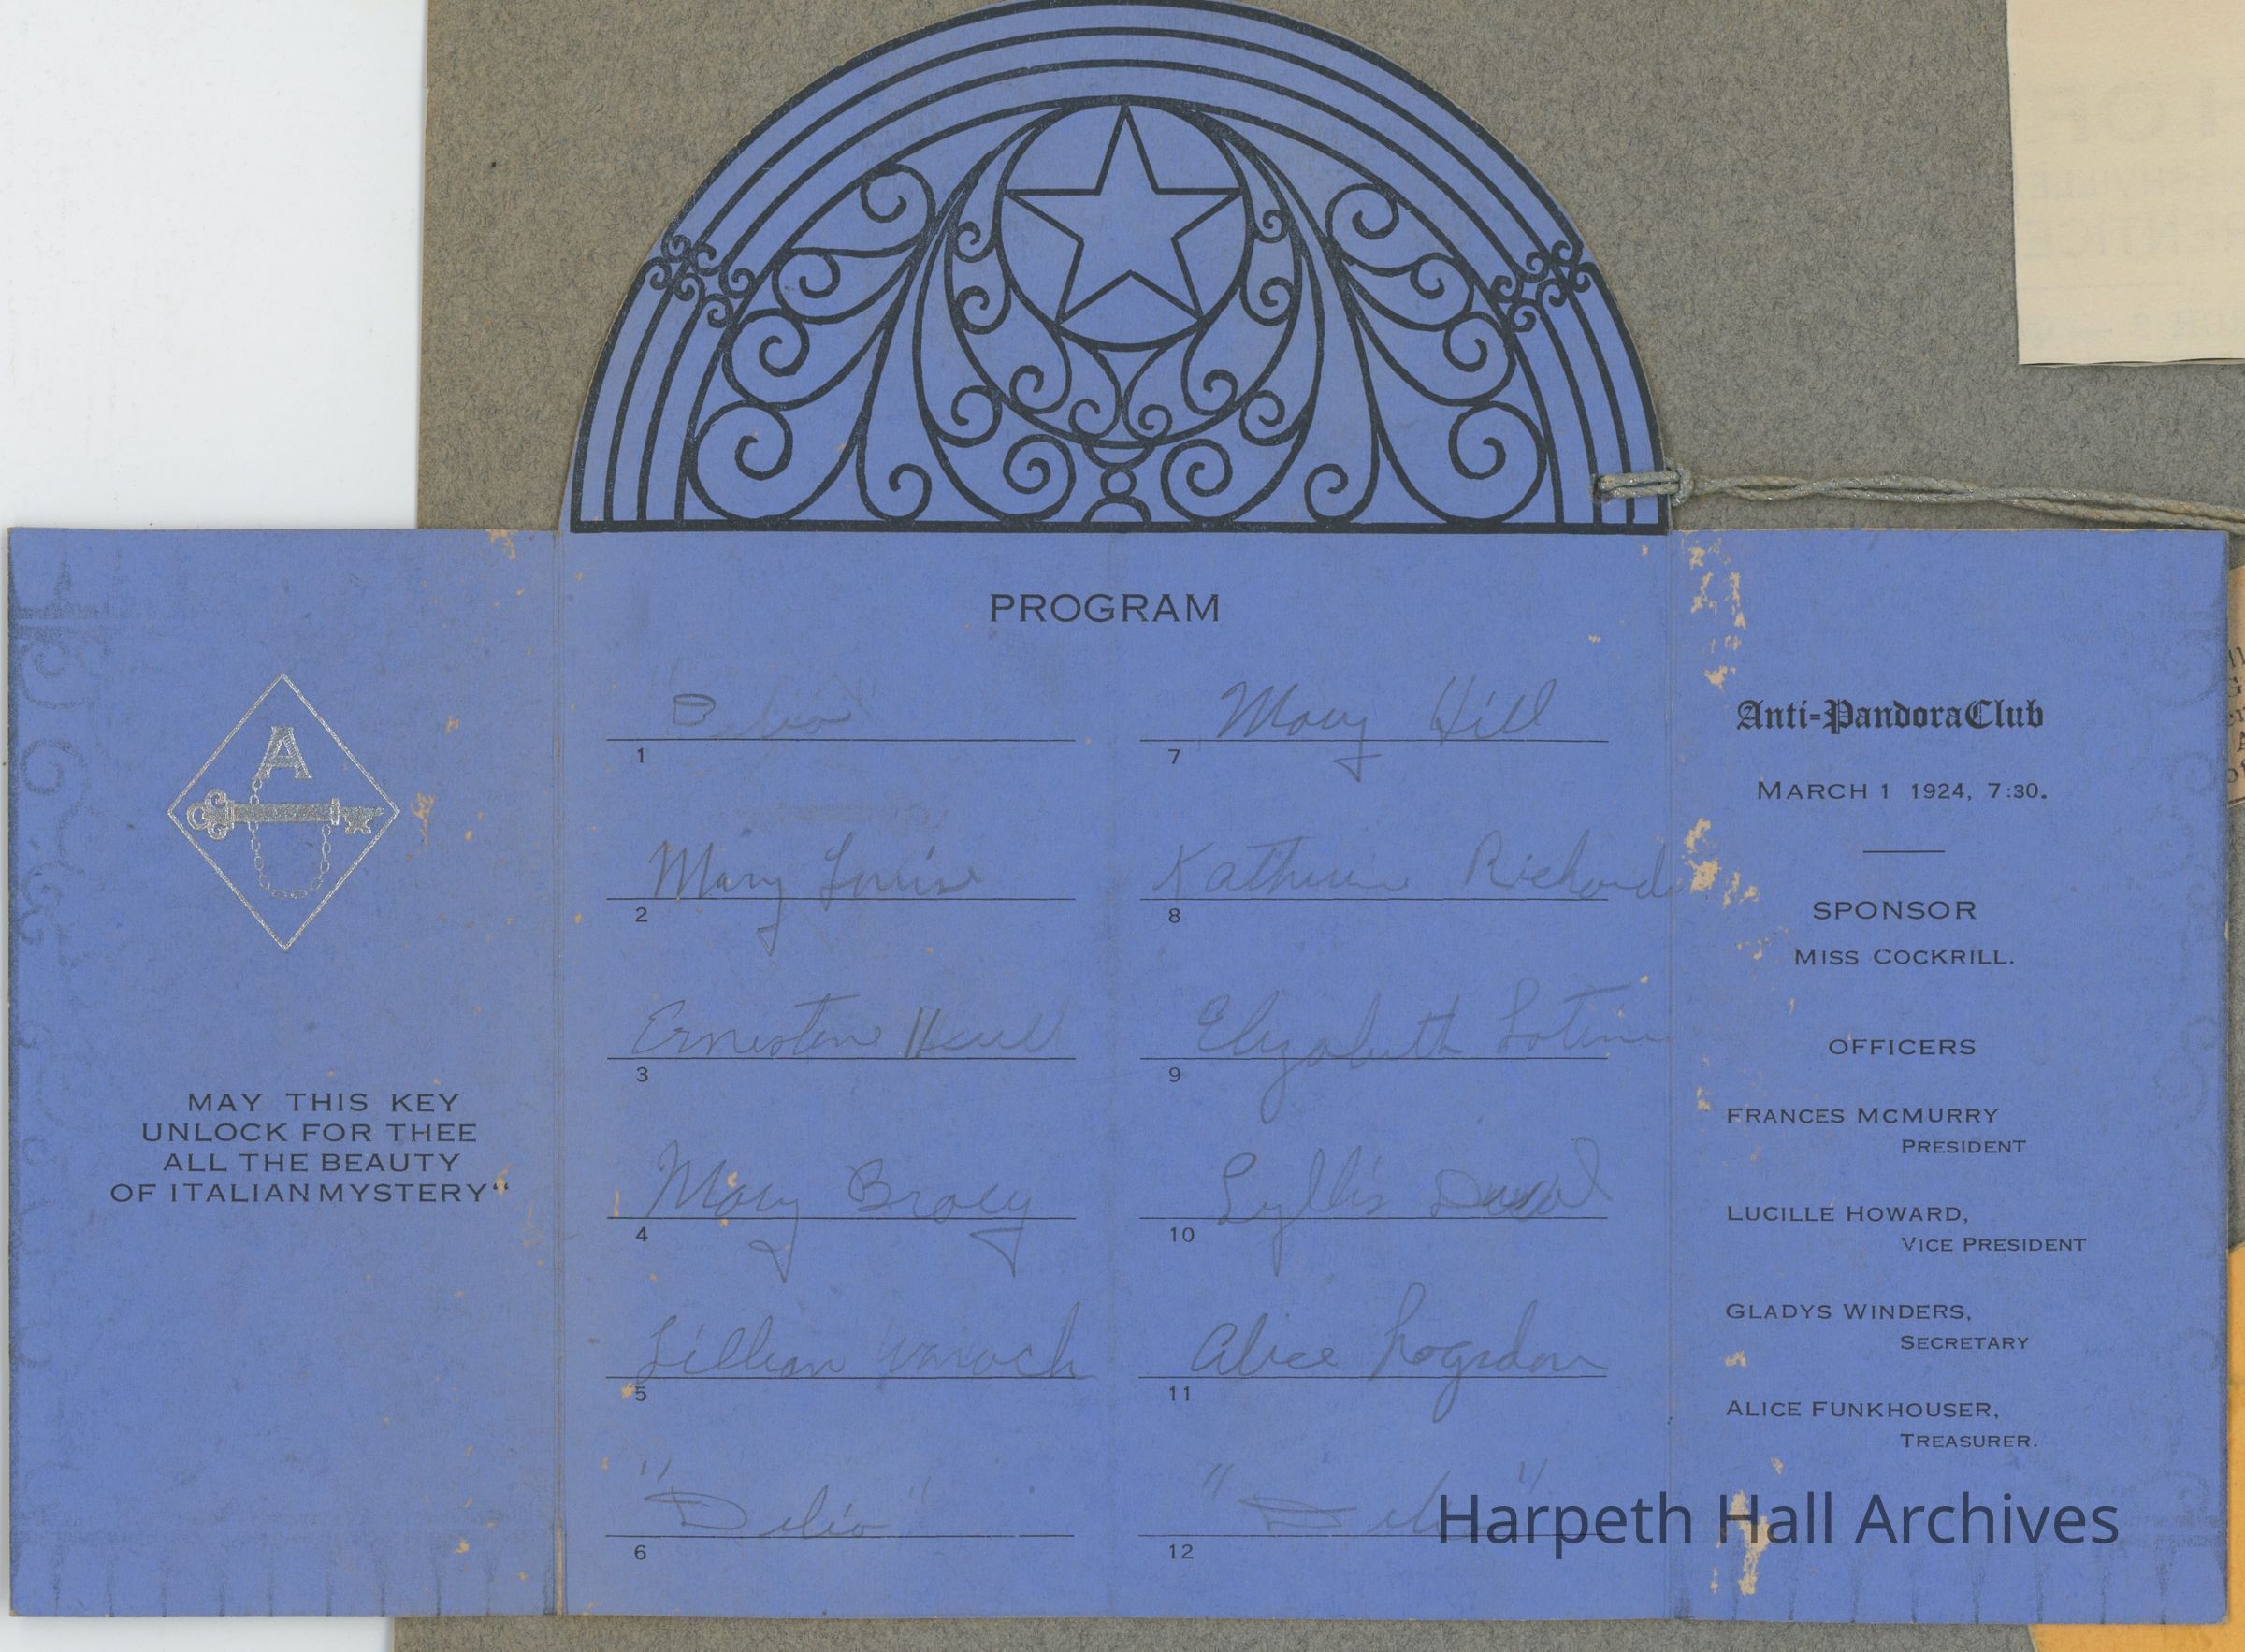 A
MAY THIS KEY
UNLOCK FOR THEE
ALL THE BEAUTY
OF ITALIAN MYSTERY“
PROGRAM
1
Mary Louise
2
Ernestine
3
Mary Bracy
4
Lillian
5
"Delio"
6
Mary Hill
7
Kathrine Richards
8
Elizabeth
9
Lyllis
10
Alice Logsdon
11
12
Anti-Pandora Club
MARCH 1 1924, 7:30.
SPONSOR
MISS COCKRILL.
OFFICERS
FRANCES MCMURRY
PRESIDENT
LUCILLE HOWARD,
VICE PRESIDENT
GLADYS WINDERS,
SECRETARY
ALICE FUNKHOUSER,
TREASURER.
Harpeth Hall Archives